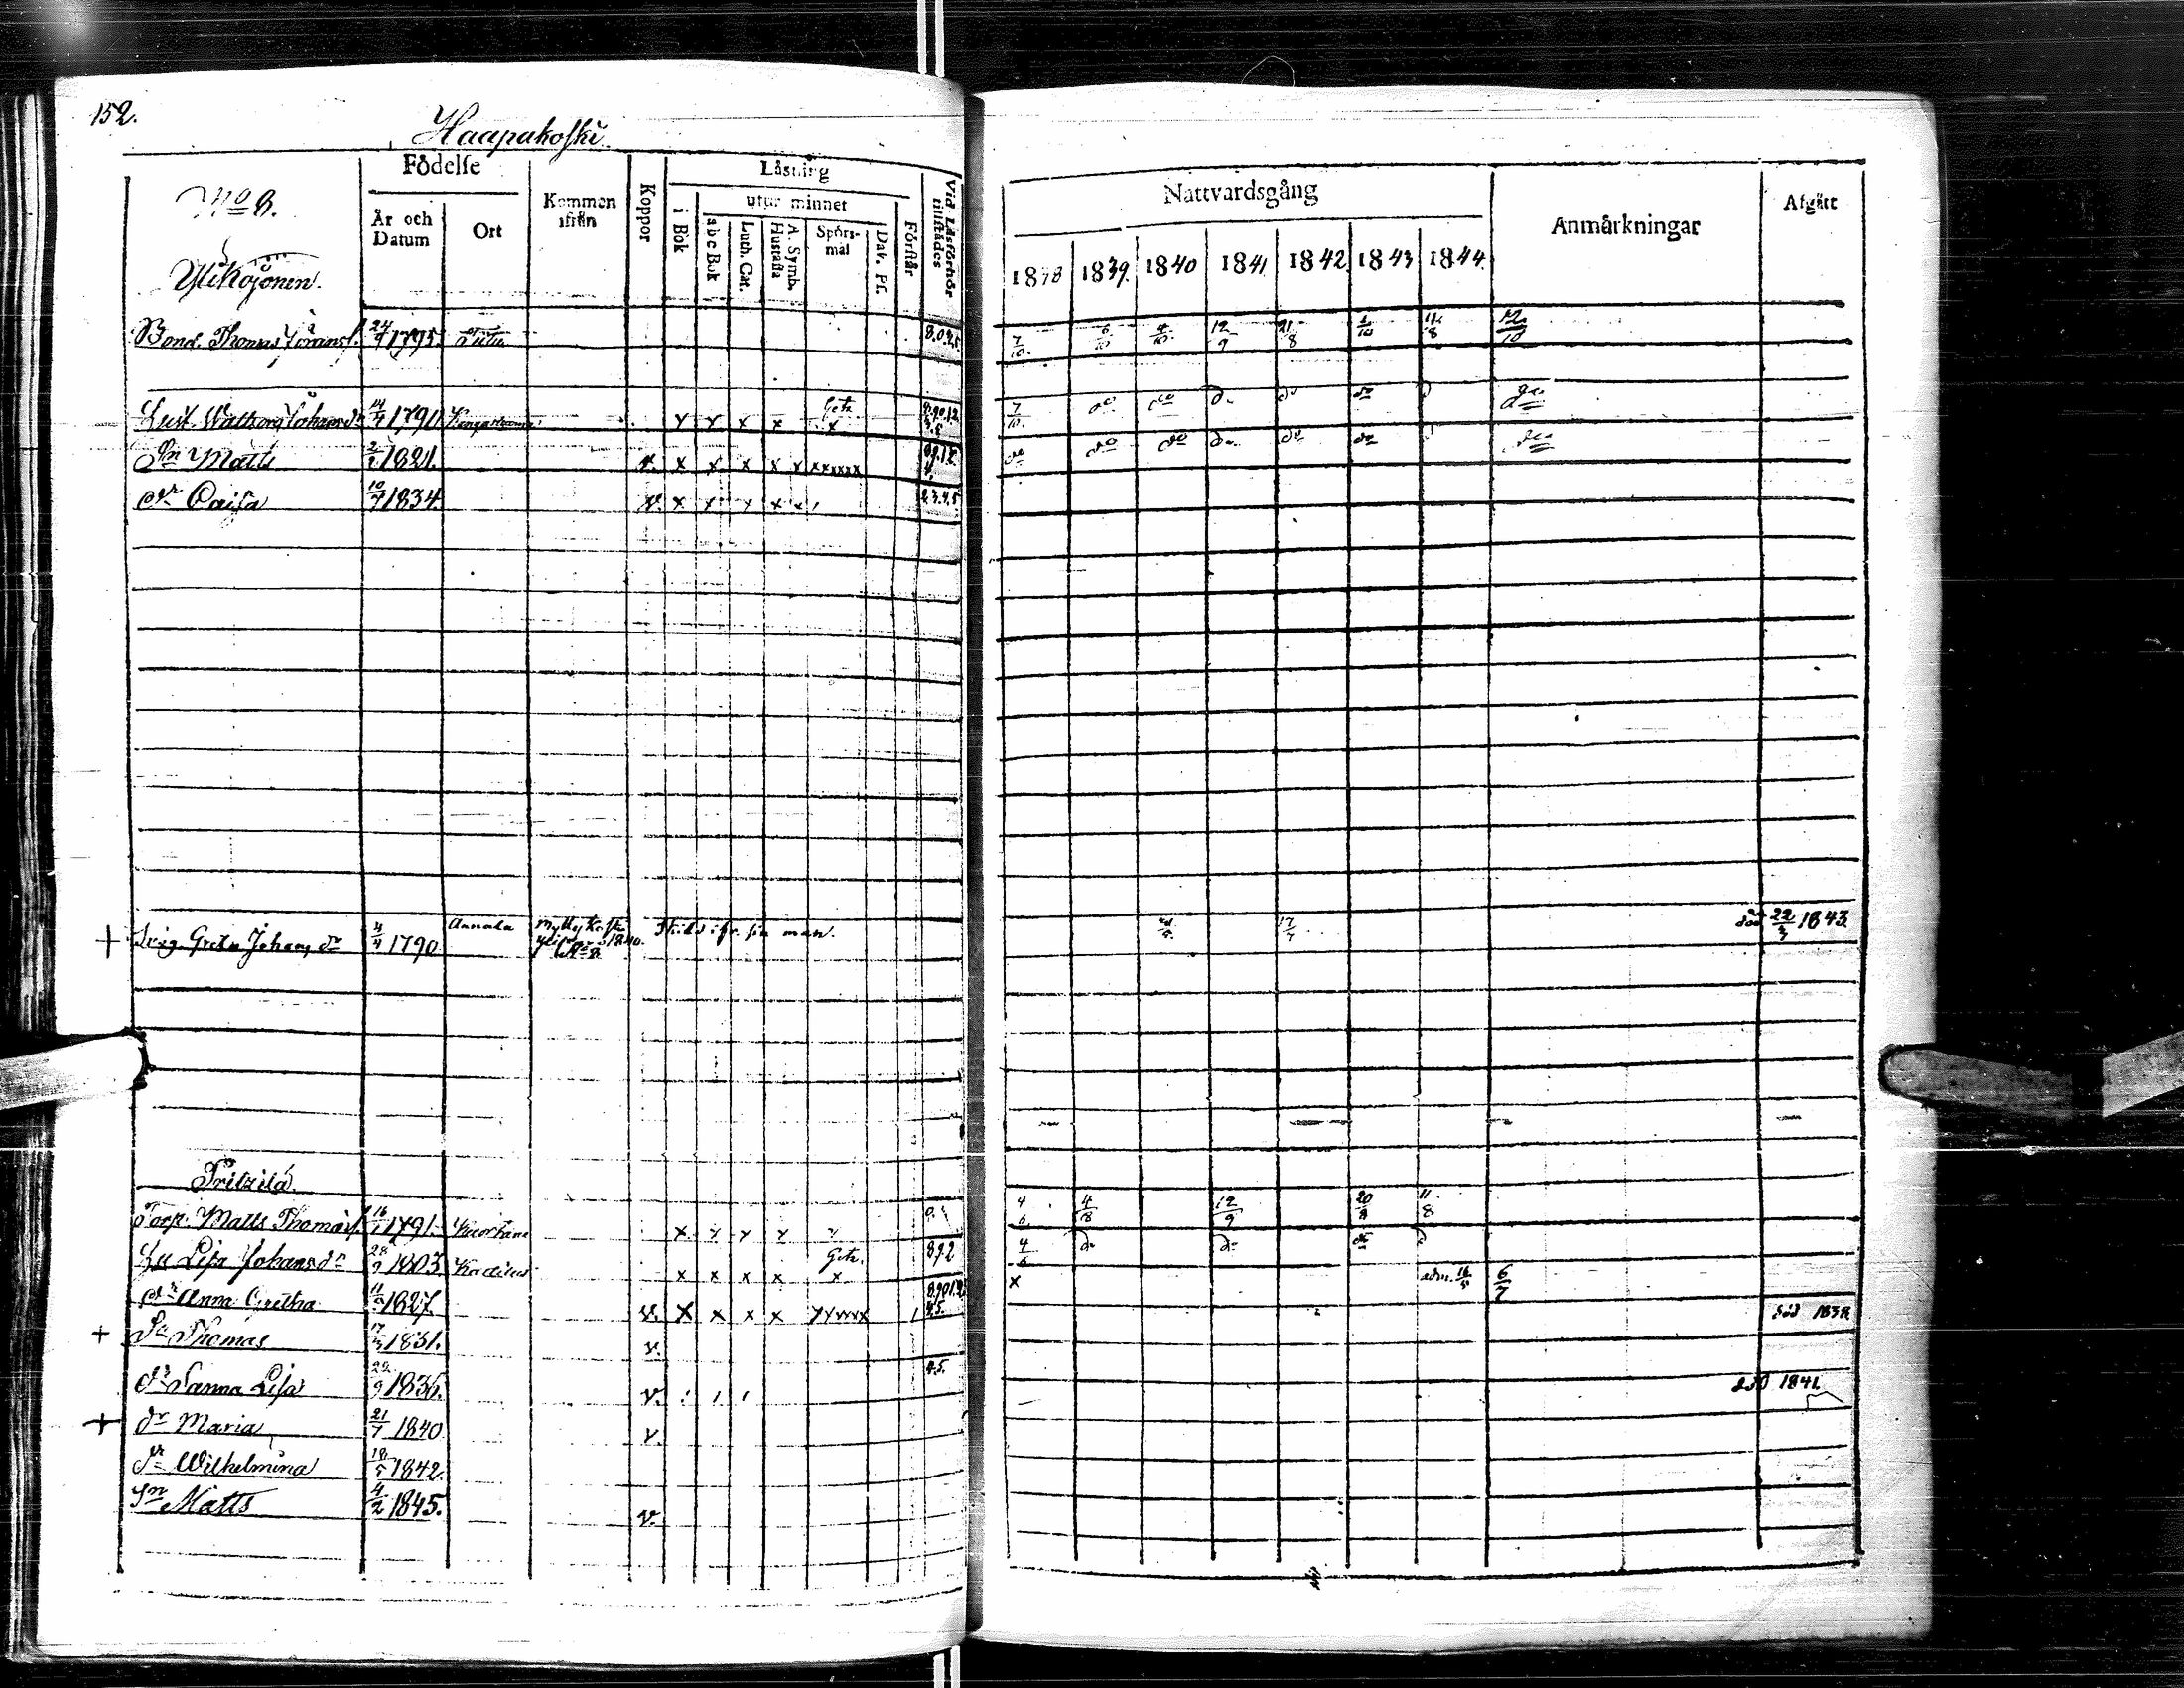 152.
Haapakoski
No 8.
Ylikojonen.
Födelse
År och Datum
Ort
Kommen ifrån
Koppor
Läsning
i Bok
utur minnet
abc Bok
Luth. Cat.
A. Symb. Hustafla
Spörsmål
Dav. Ps.
Förstår
Vid Läsförhör tillstädes
Nattvardsgång
1838 1839. 1840 1841 1842. 1843 1844.
Anmärkningar
Afgått
Bond. Thomas 24/4 1795. 7/10. 6/10 4/10. 12/9 21/8 1/10 11/8 12/10
Hust. Walborg Johansdr 14/4 1790 x x x x x 7/10. do do do do do
Sn Matts 1821. x x x x x x xxxxxx do do do do do do
dr Caisa 10/7 1834. v. x x x x x 2.3.4.5
+ Greta Johansdr 4/4 1790 Annala Myllykoski 1840. Skild ifr. sin man. 17/7 död 22/3 1843.
Pritzilä
Torp. Matts Thomass. 16/ 1791. Kuortane x x x x 4/6 4/8 12/9 20/8 11/8
Hu Lisa Johansdr 28/9 1803. x x x x Getz. x 8.9.2 4/6 do do do
dr Anna Gretha 11/9 1827. v. x x x x x adm. 16/5 6/7
+ Sn Thomas 17/3 1831. v. död 1838
dr Sanna Lisa 29/9 1836. v. 4.5.
+ dr Maria 21/7 1840 v. död 1841.
dr Wilhelmina 18/5 1842.
Sn Matts 4/2 1845. v.